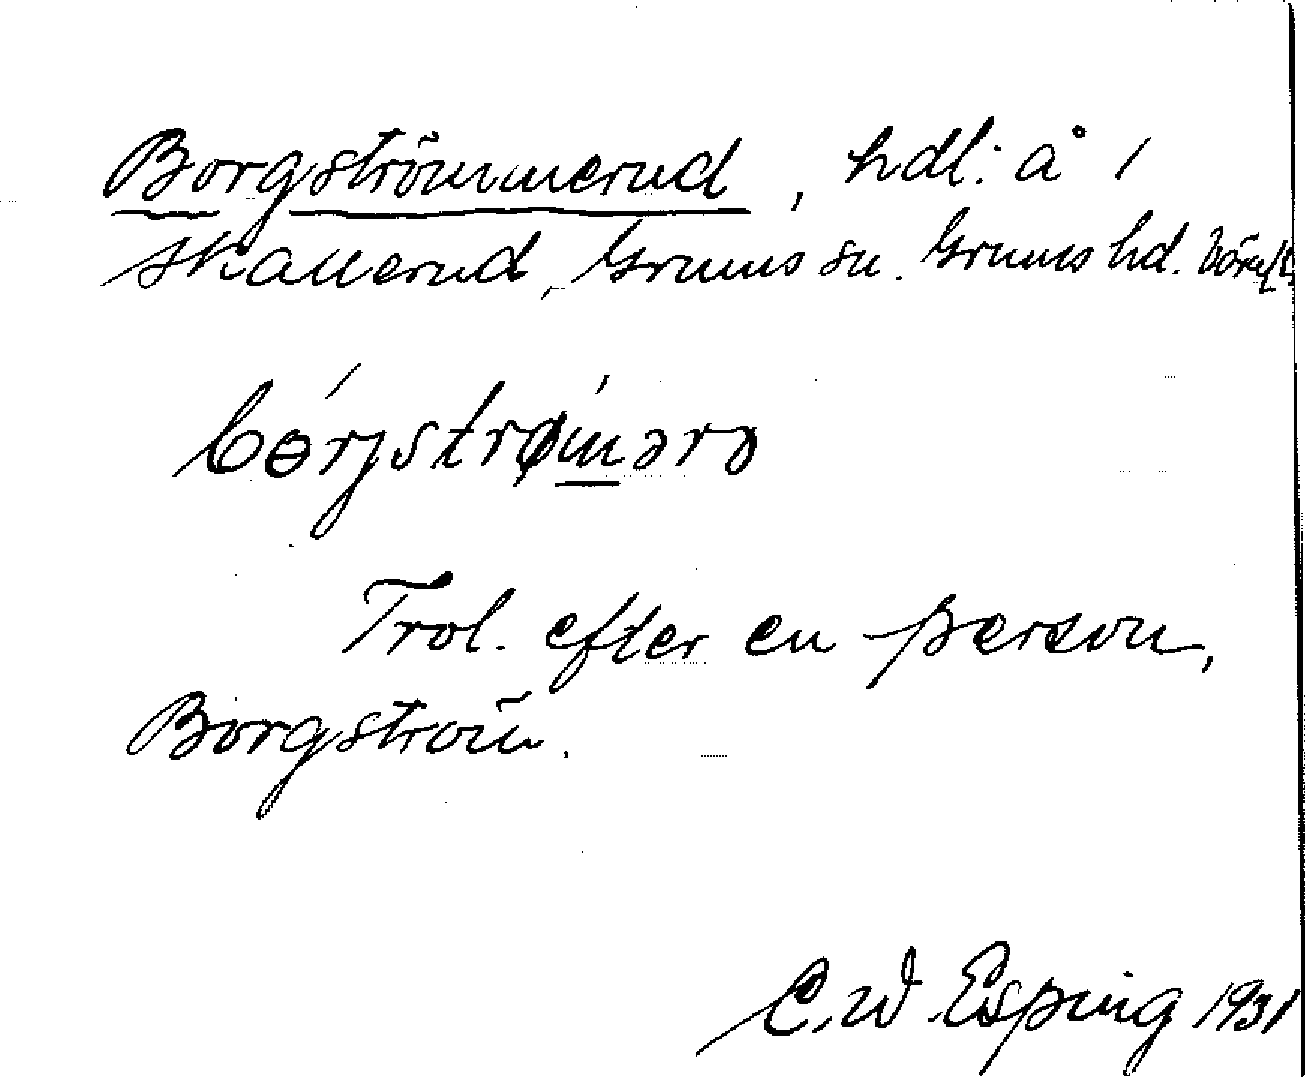 Borgströmmerud, hdl: å 1
Skallerud, Grums sn. Grums hd. Vörml.
bɵ́rjstrøm̲ərɔ
Trol. efter en person,
Borgström.
C.W. Esping 1931